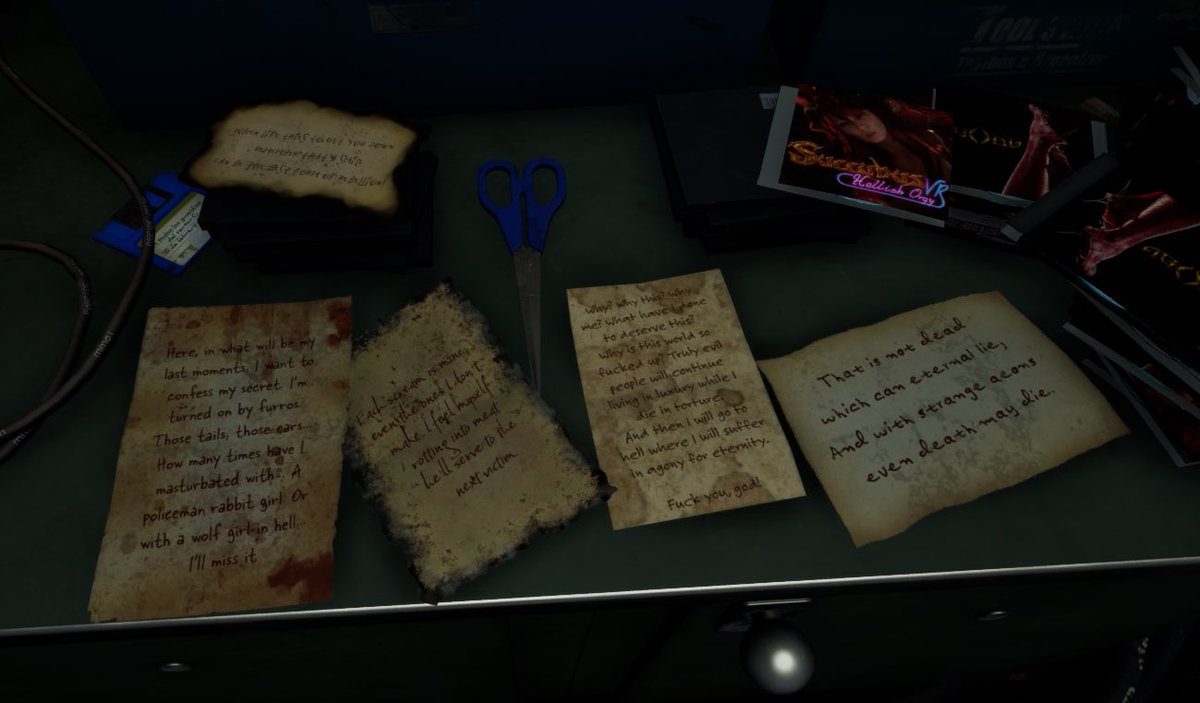 WHEN LIFE TEARS YOU DOWN
REMEMBER THAT A SMILE
CAN BE THE BEST FORM OF REBELLION!
Here, in what will be my
last moments, I want to
confess my secret. I'm
turned on by furros.
Those tails, those ears...
How many times have I
masturbated with... A
policeman rabbit girl. Or
with a wolf girl in hell...
I'll miss it
Each scream is mine,
even the ones I don't
make. I feel myself
rotting into meat
he'll serve to the
next victim.
Why? Why this? Why
me? What have I done
to deserve this?
Why is this world so
fucked up? Truly evil
people will continue
living in luxury while I
die in torture.
And then I will go to
hell where I will suffer
in agony for eternity.
Fuck you, god!
That is not dead
which can eternal lie,
And with strange aeons
even death may die.
Succubus VR
Hellish Orgy